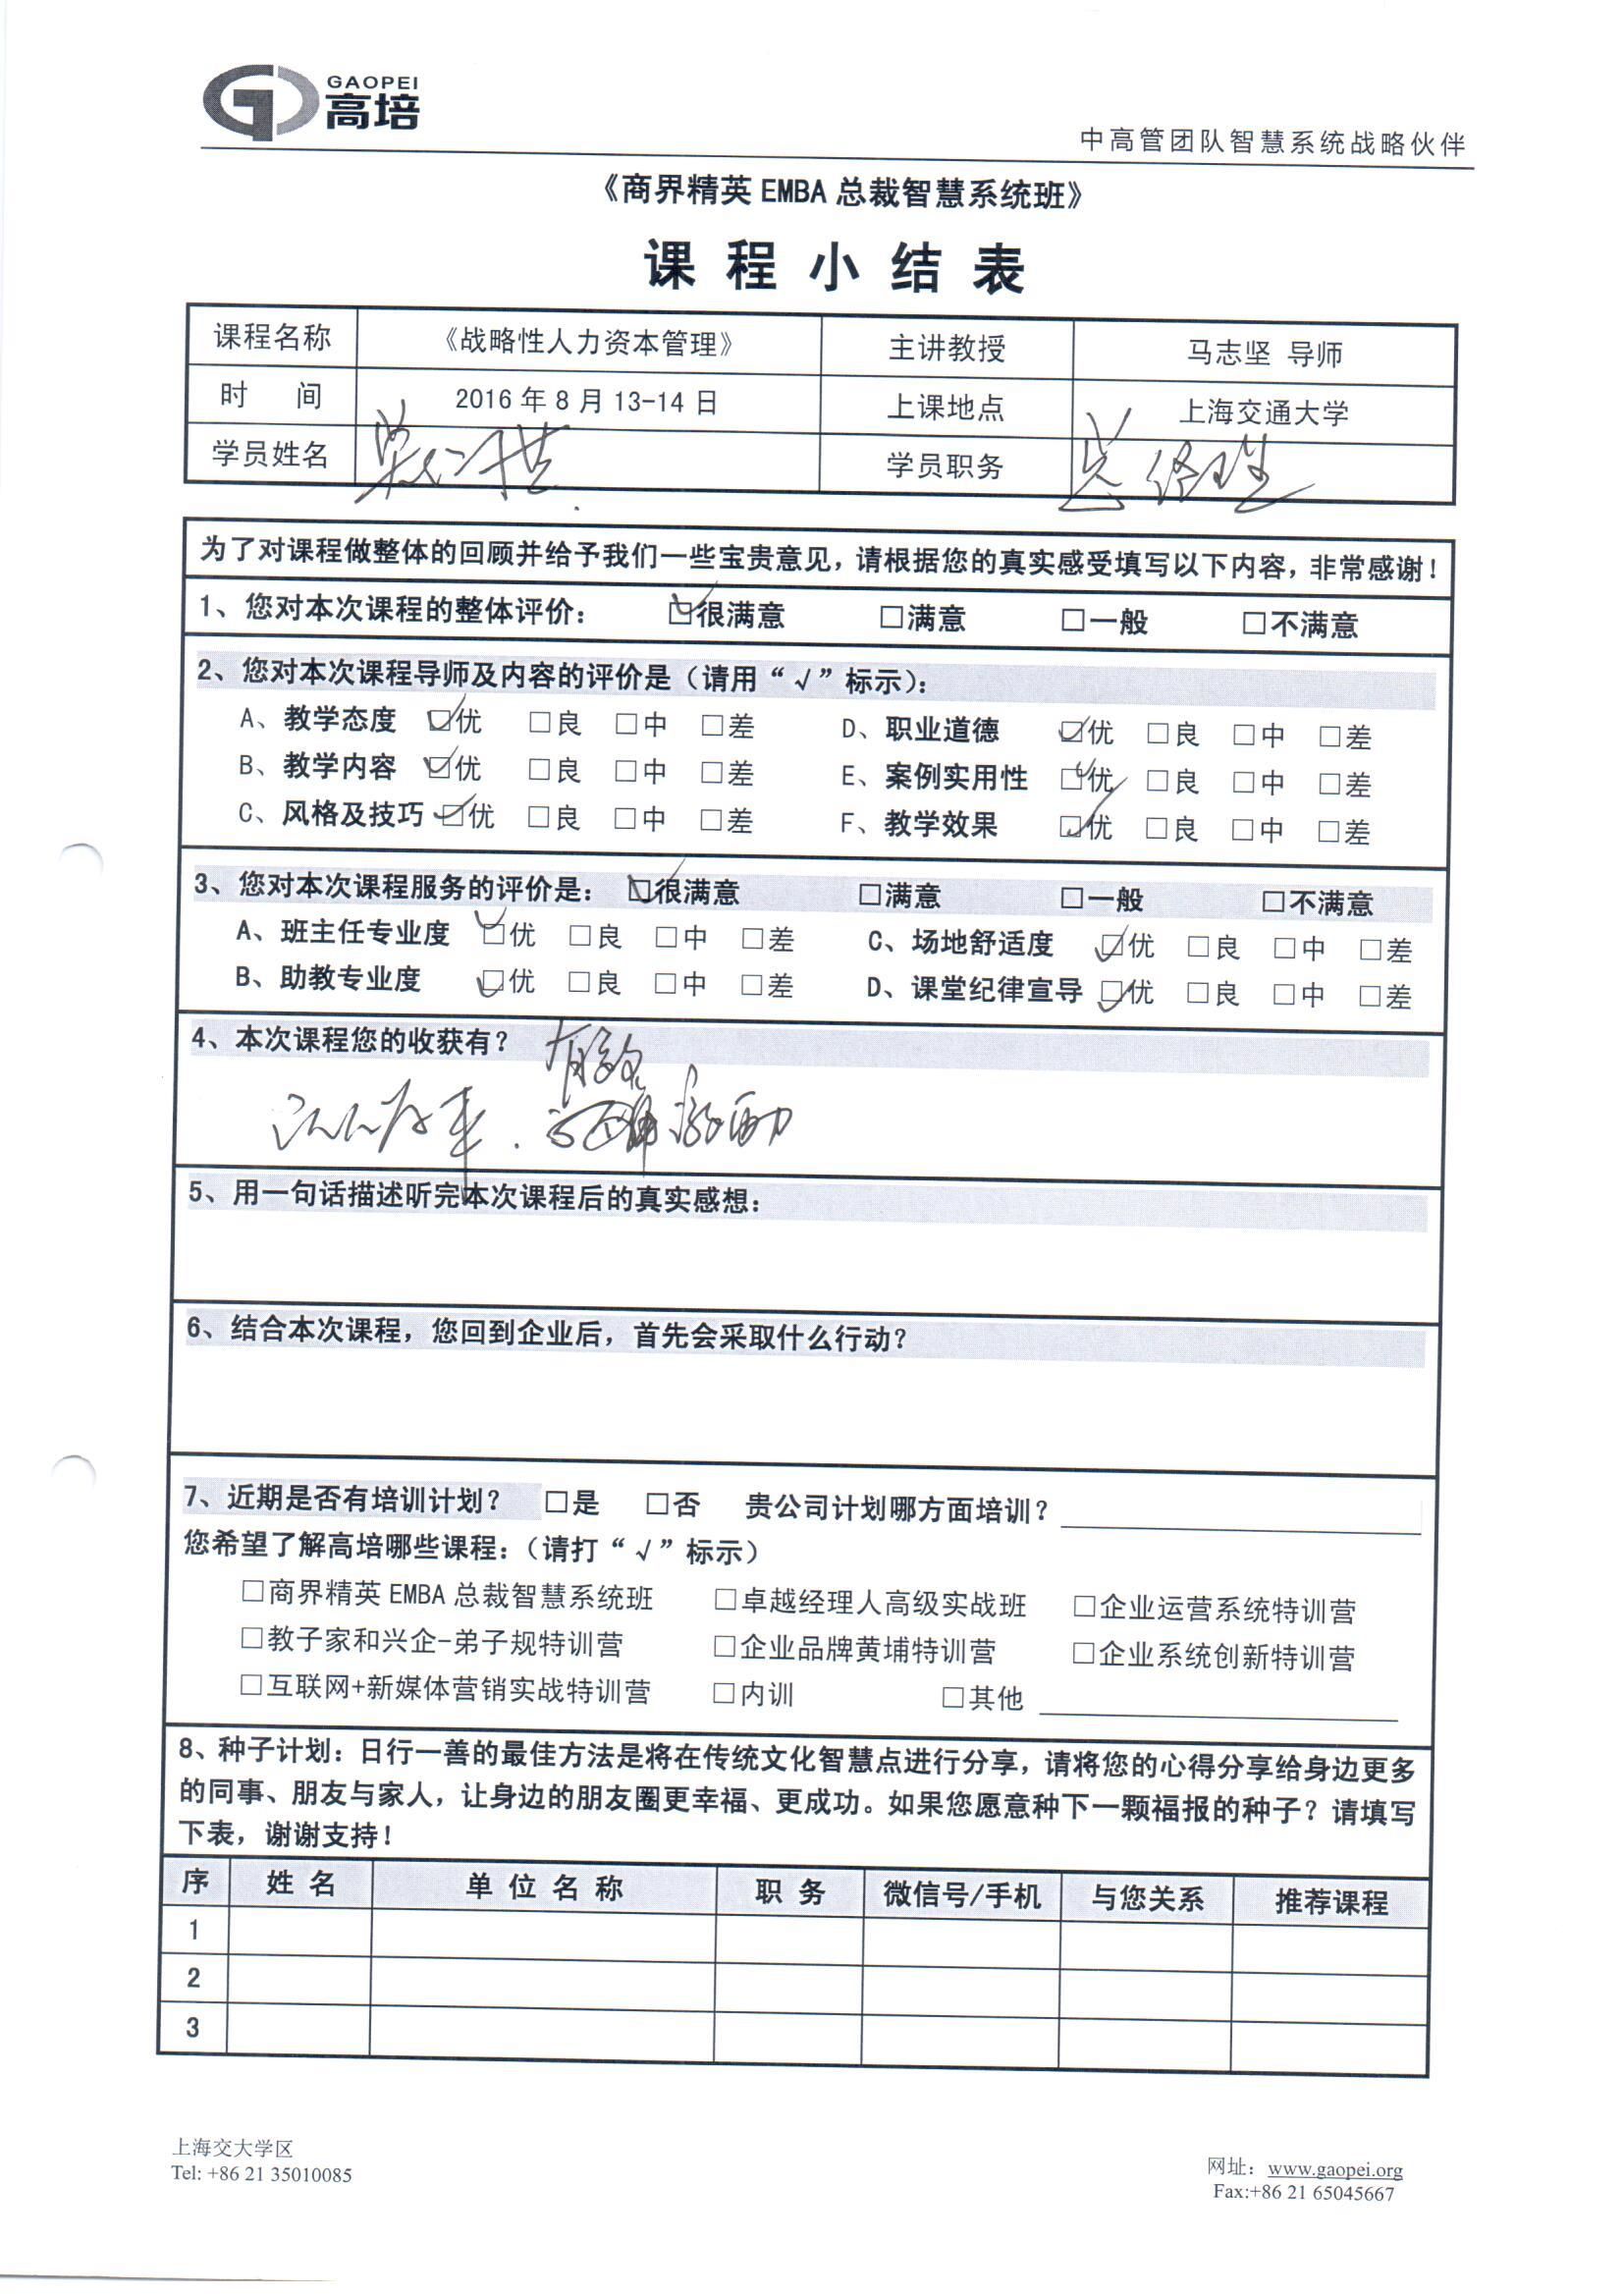 GAOPEI
高培
中高管团队智慧系统战略伙伴
《商界精英 EMBA 总裁智慧系统班》
课程小结表
课程名称 《战略性人力资本管理》 主讲教授 马志坚 导师
时 间 2016 年 8 月 13-14 日 上课地点 上海交通大学
学员姓名 学员职务 总经理
为了对课程做整体的回顾并给予我们一些宝贵意见，请根据您的真实感受填写以下内容，非常感谢！
1、您对本次课程的整体评价： ☑很满意 □满意 □一般 □不满意
2、您对本次课程导师及内容的评价是（请用“√”标示）：
A、教学态度 ☑优 □良 □中 □差 D、职业道德 ☑优 □良 □中 □差
B、教学内容 ☑优 □良 □中 □差 E、案例实用性 ☑优 □良 □中 □差
C、风格及技巧 ☑优 □良 □中 □差 F、教学效果 ☑优 □良 □中 □差
3、您对本次课程服务的评价是： ☑很满意 □满意 □一般 □不满意
A、班主任专业度 ☑优 □良 □中 □差 C、场地舒适度 ☑优 □良 □中 □差
B、助教专业度 ☑优 □良 □中 □差 D、课堂纪律宣导 ☑优 □良 □中 □差
4、本次课程您的收获有？
5、用一句话描述听完本次课程后的真实感想：
6、结合本次课程，您回到企业后，首先会采取什么行动？
7、近期是否有培训计划？ □是 □否 贵公司计划哪方面培训？
您希望了解高培哪些课程：（请打“√”标示）
□商界精英 EMBA 总裁智慧系统班 □卓越经理人高级实战班 □企业运营系统特训营
□教子家和兴企-弟子规特训营 □企业品牌黄埔特训营 □企业系统创新特训营
□互联网+新媒体营销实战特训营 □内训 □其他
8、种子计划：日行一善的最佳方法是将在传统文化智慧点进行分享，请将您的心得分享给身边更多
的同事、朋友与家人，让身边的朋友圈更幸福、更成功。如果您愿意种下一颗福报的种子？请填写
下表，谢谢支持！
序 姓 名 单 位 名 称 职 务 微信号/手机 与您关系 推荐课程
1
2
3
上海交大学区 网址：www.gaopei.org
Tel: +86 21 35010085 Fax:+86 21 65045667